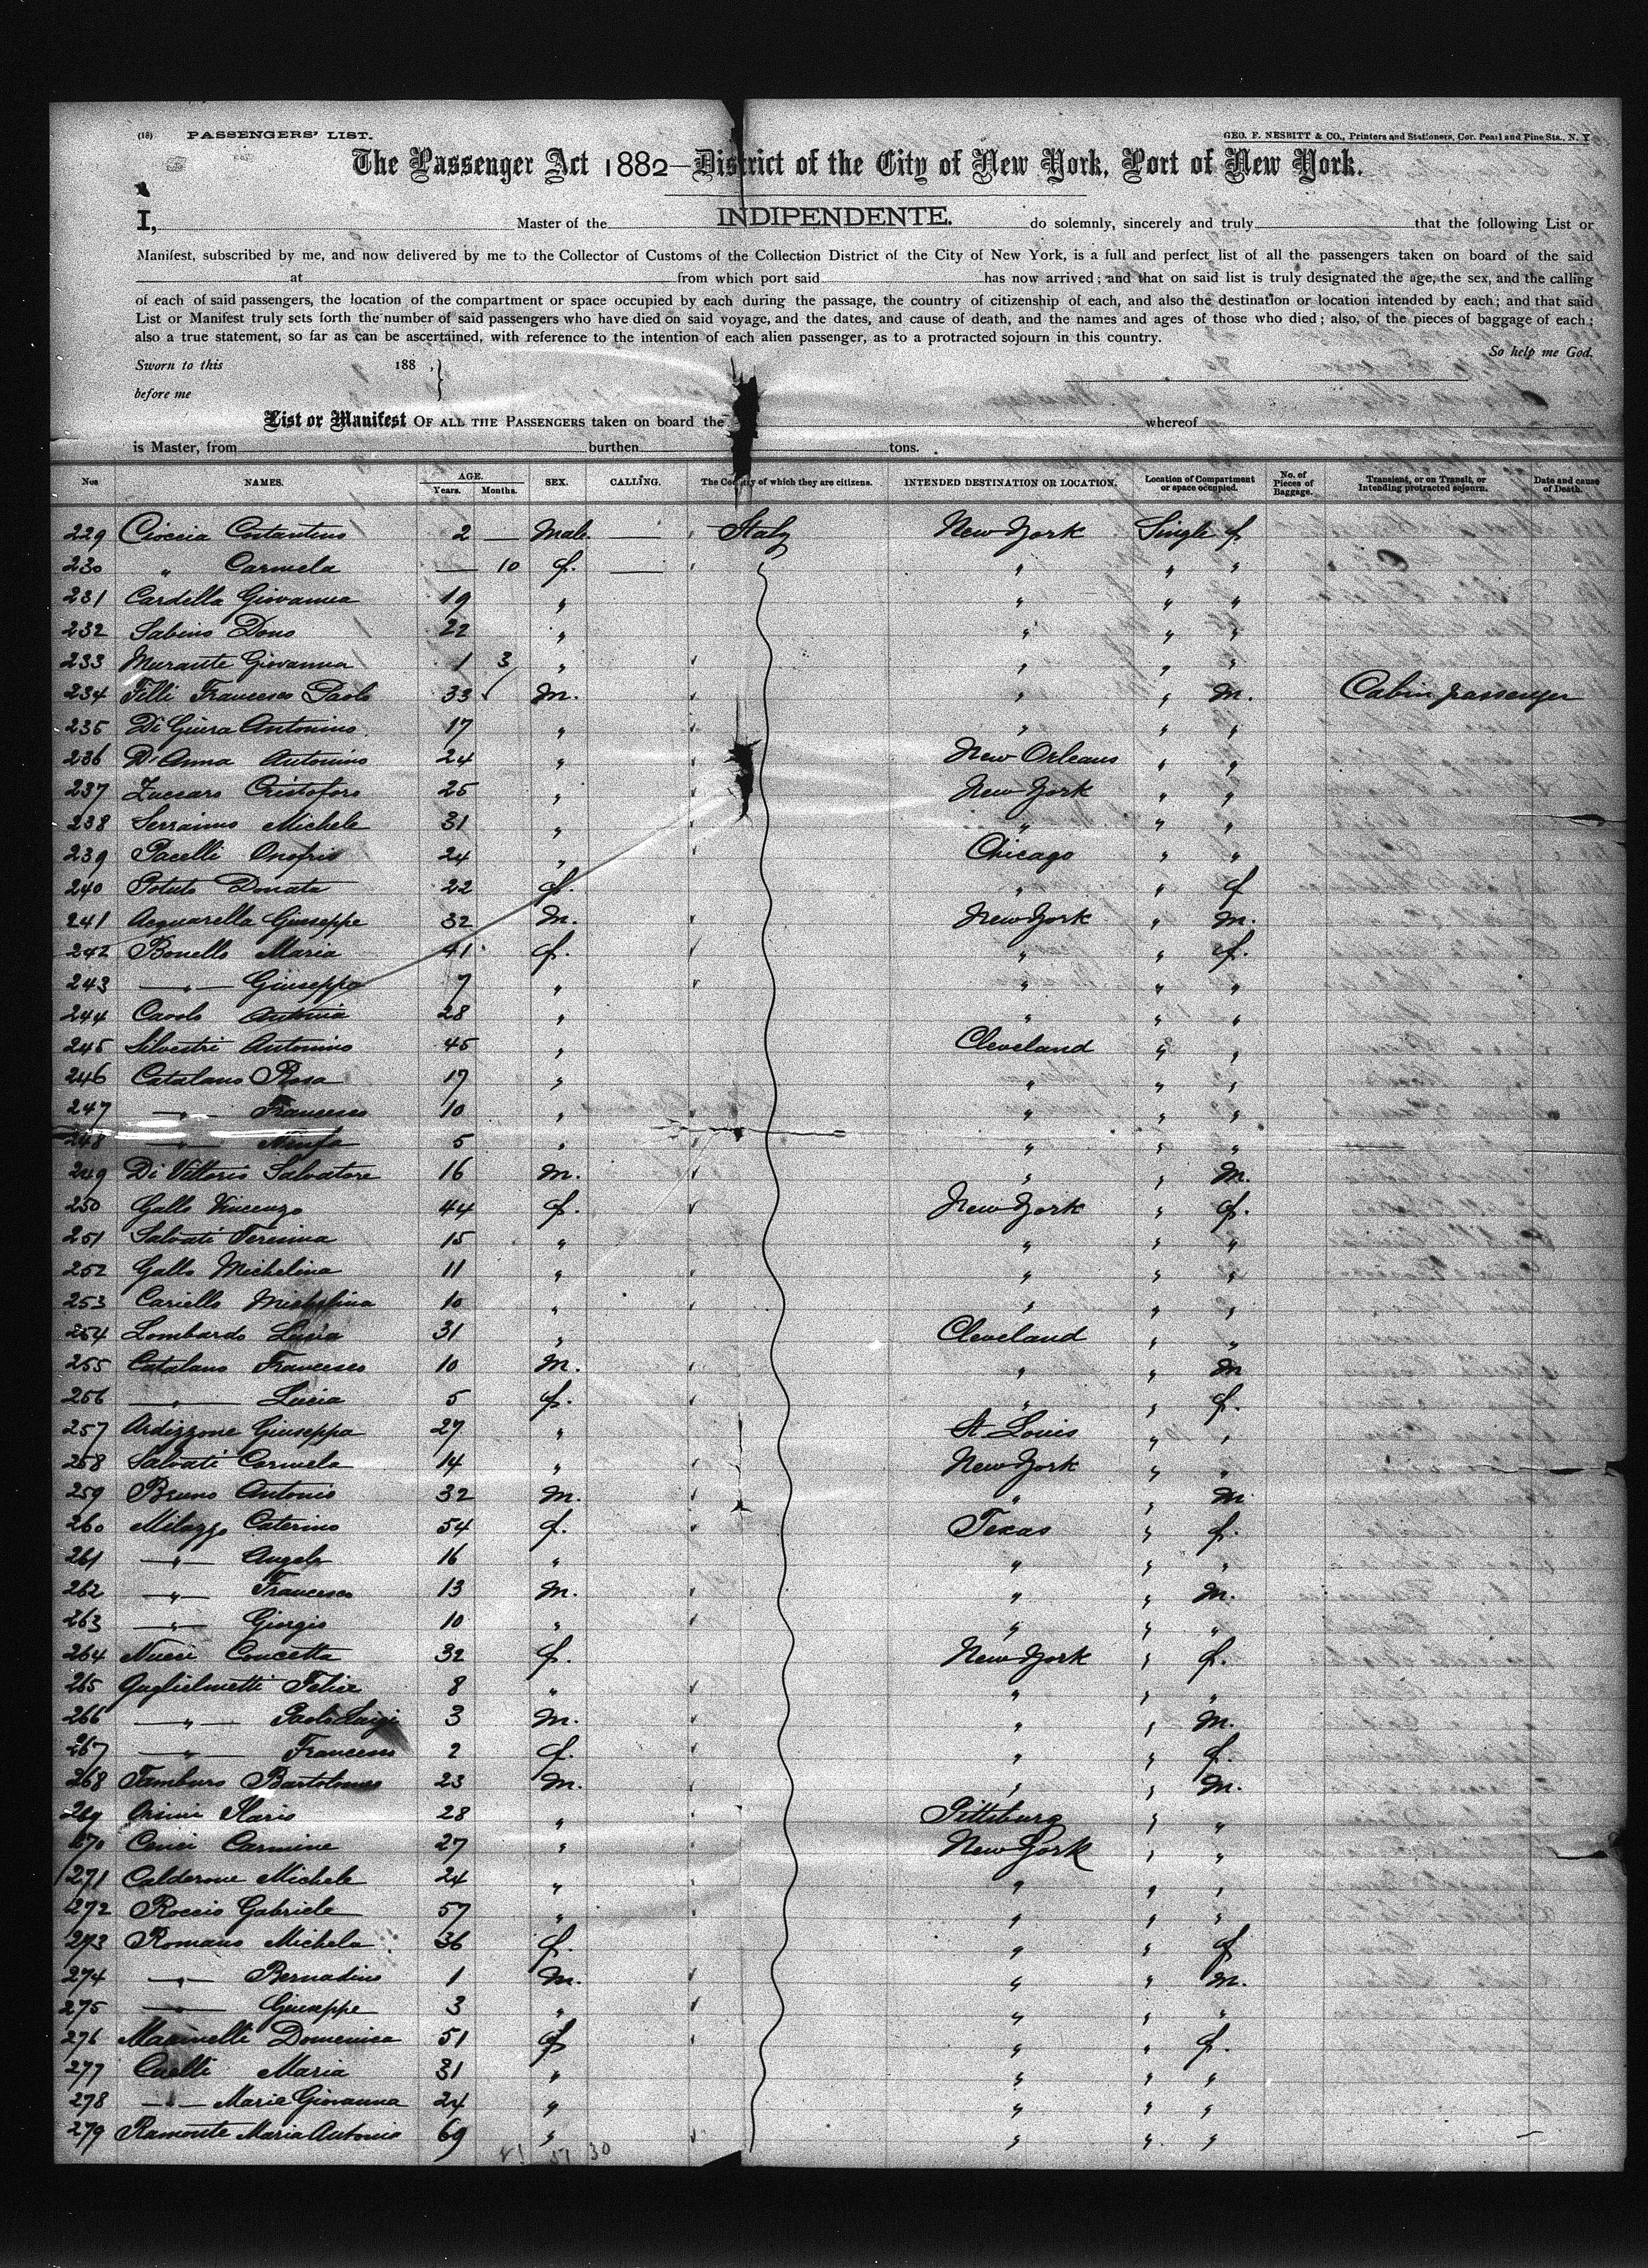 (18) PASSENGERS' LIST. GEO. F. NESBITT & CO., Printers and Stationers, Cor. Pearl and Pine Sts., N. Y
The Passenger Act 1882—District of the City of New York, Port of New York.
I, Master of the INDIPENDENTE. do solemnly, sincerely and truly that the following List or
Manifest, subscribed by me, and now delivered by me to the Collector of Customs of the Collection District of the City of New York, is a full and perfect list of all the passengers taken on board of the said
at from which port said has now arrived; and that on said list is truly designated the age, the sex, and the calling
of each of said passengers, the location of the compartment or space occupied by each during the passage, the country of citizenship of each, and also the destination or location intended by each; and that said
List or Manifest truly sets forth the number of said passengers who have died on said voyage, and the dates, and cause of death, and the names and ages of those who died; also, of the pieces of baggage of each;
also a true statement, so far as can be ascertained, with reference to the intention of each alien passenger, as to a protracted sojourn in this country. So help me God.
Sworn to this 188 ,
before me
List or Manifest OF ALL THE PASSENGERS taken on board the whereof
is Master, from burthen tons.
Nos NAMES. AGE. Years. Months. SEX. CALLING. The Country of which they are citizens. INTENDED DESTINATION OR LOCATION. Location of Compartment or space occupied. No. of Pieces of Baggage. Transient, or on Transit, or Intending protracted sojourn. Date and cause of Death.
229 Cioccia Costantino 2 — Male — Italy New York Single f.
230 " Carmela — 10 f. — " " "
231 Cardella Giovanna 19 " " " "
232 Sabino Dono 22 " " " "
233 Murante Giovanna 1 3 " " " "
234 Filli Francesco Paolo 33 M. " " M. Cabin passenger
235 Di Giura Antonino 17 " " " "
236 D'Anna Antonino 24 " New Orleans " "
237 Zuccaro Cristoforo 25 " New York " "
238 Serraino Michele 31 " " " "
239 Pacelli Onofrio 24 " Chicago " "
240 Potuto Donata 22 f. " " f
241 Acquarella Giuseppe 32 M. New York " M.
242 Bonello Maria 41 f. " " f.
243 —"— Giuseppa 7 " " " "
244 Cavolo Antonia 28 " " " "
245 Silvestri Antonino 45 " Cleveland " "
246 Catalano Rosa 17 " " " "
247 —"— Francesco 10 " " " "
248 —"— Ninfa 5 " " " "
249 Di Vittorio Salvatore 16 M. " " M.
250 Gallo Vincenzo 44 f. New York " f.
251 Salvati Teresina 15 " " " "
252 Gallo Michelina 11 " " " "
253 Cariello Michelina 10 " " " "
254 Lombardo Lucia 31 " Cleveland " "
255 Catalano Francesco 10 M. " " M
256 —"— Lucia 5 f. " " f.
257 Ardizzone Giuseppa 27 " St. Louis " "
258 Salvati Carmela 14 " New York " "
259 Bruno Antonio 32 M. " " M
260 Milazzo Caterino 54 f. Texas " f.
261 —"— Angela 16 " " " "
262 —"— Francesco 13 M. " " M.
263 —"— Giorgio 10 " " "
264 Nucci Concetta 32 f. New York " f.
265 Guglielmetti Felice 8 " " " "
266 —"— Paolo Luigi 3 M. " " M.
267 —"— Francesco 2 f. " " f.
268 Tamburo Bartolomeo 23 M. " " M.
269 Orsini Ilario 28 " Pittsburg " "
270 Cenci Carmine 27 " New York " "
271 Calderone Michele 24 " " " "
272 Roccio Gabriele 57 " " " "
273 Romano Michela 36 f. " " f
274 —"— Bernadino 1 M. " " M.
275 —"— Giuseppe 3 " " " "
276 Marinelli Domenica 51 f " " f.
277 Cuelli Maria 31 " " " "
278 —"— Maria Giovanna 24 " " " "
279 Ramonte Maria Antonia 69 " " " "